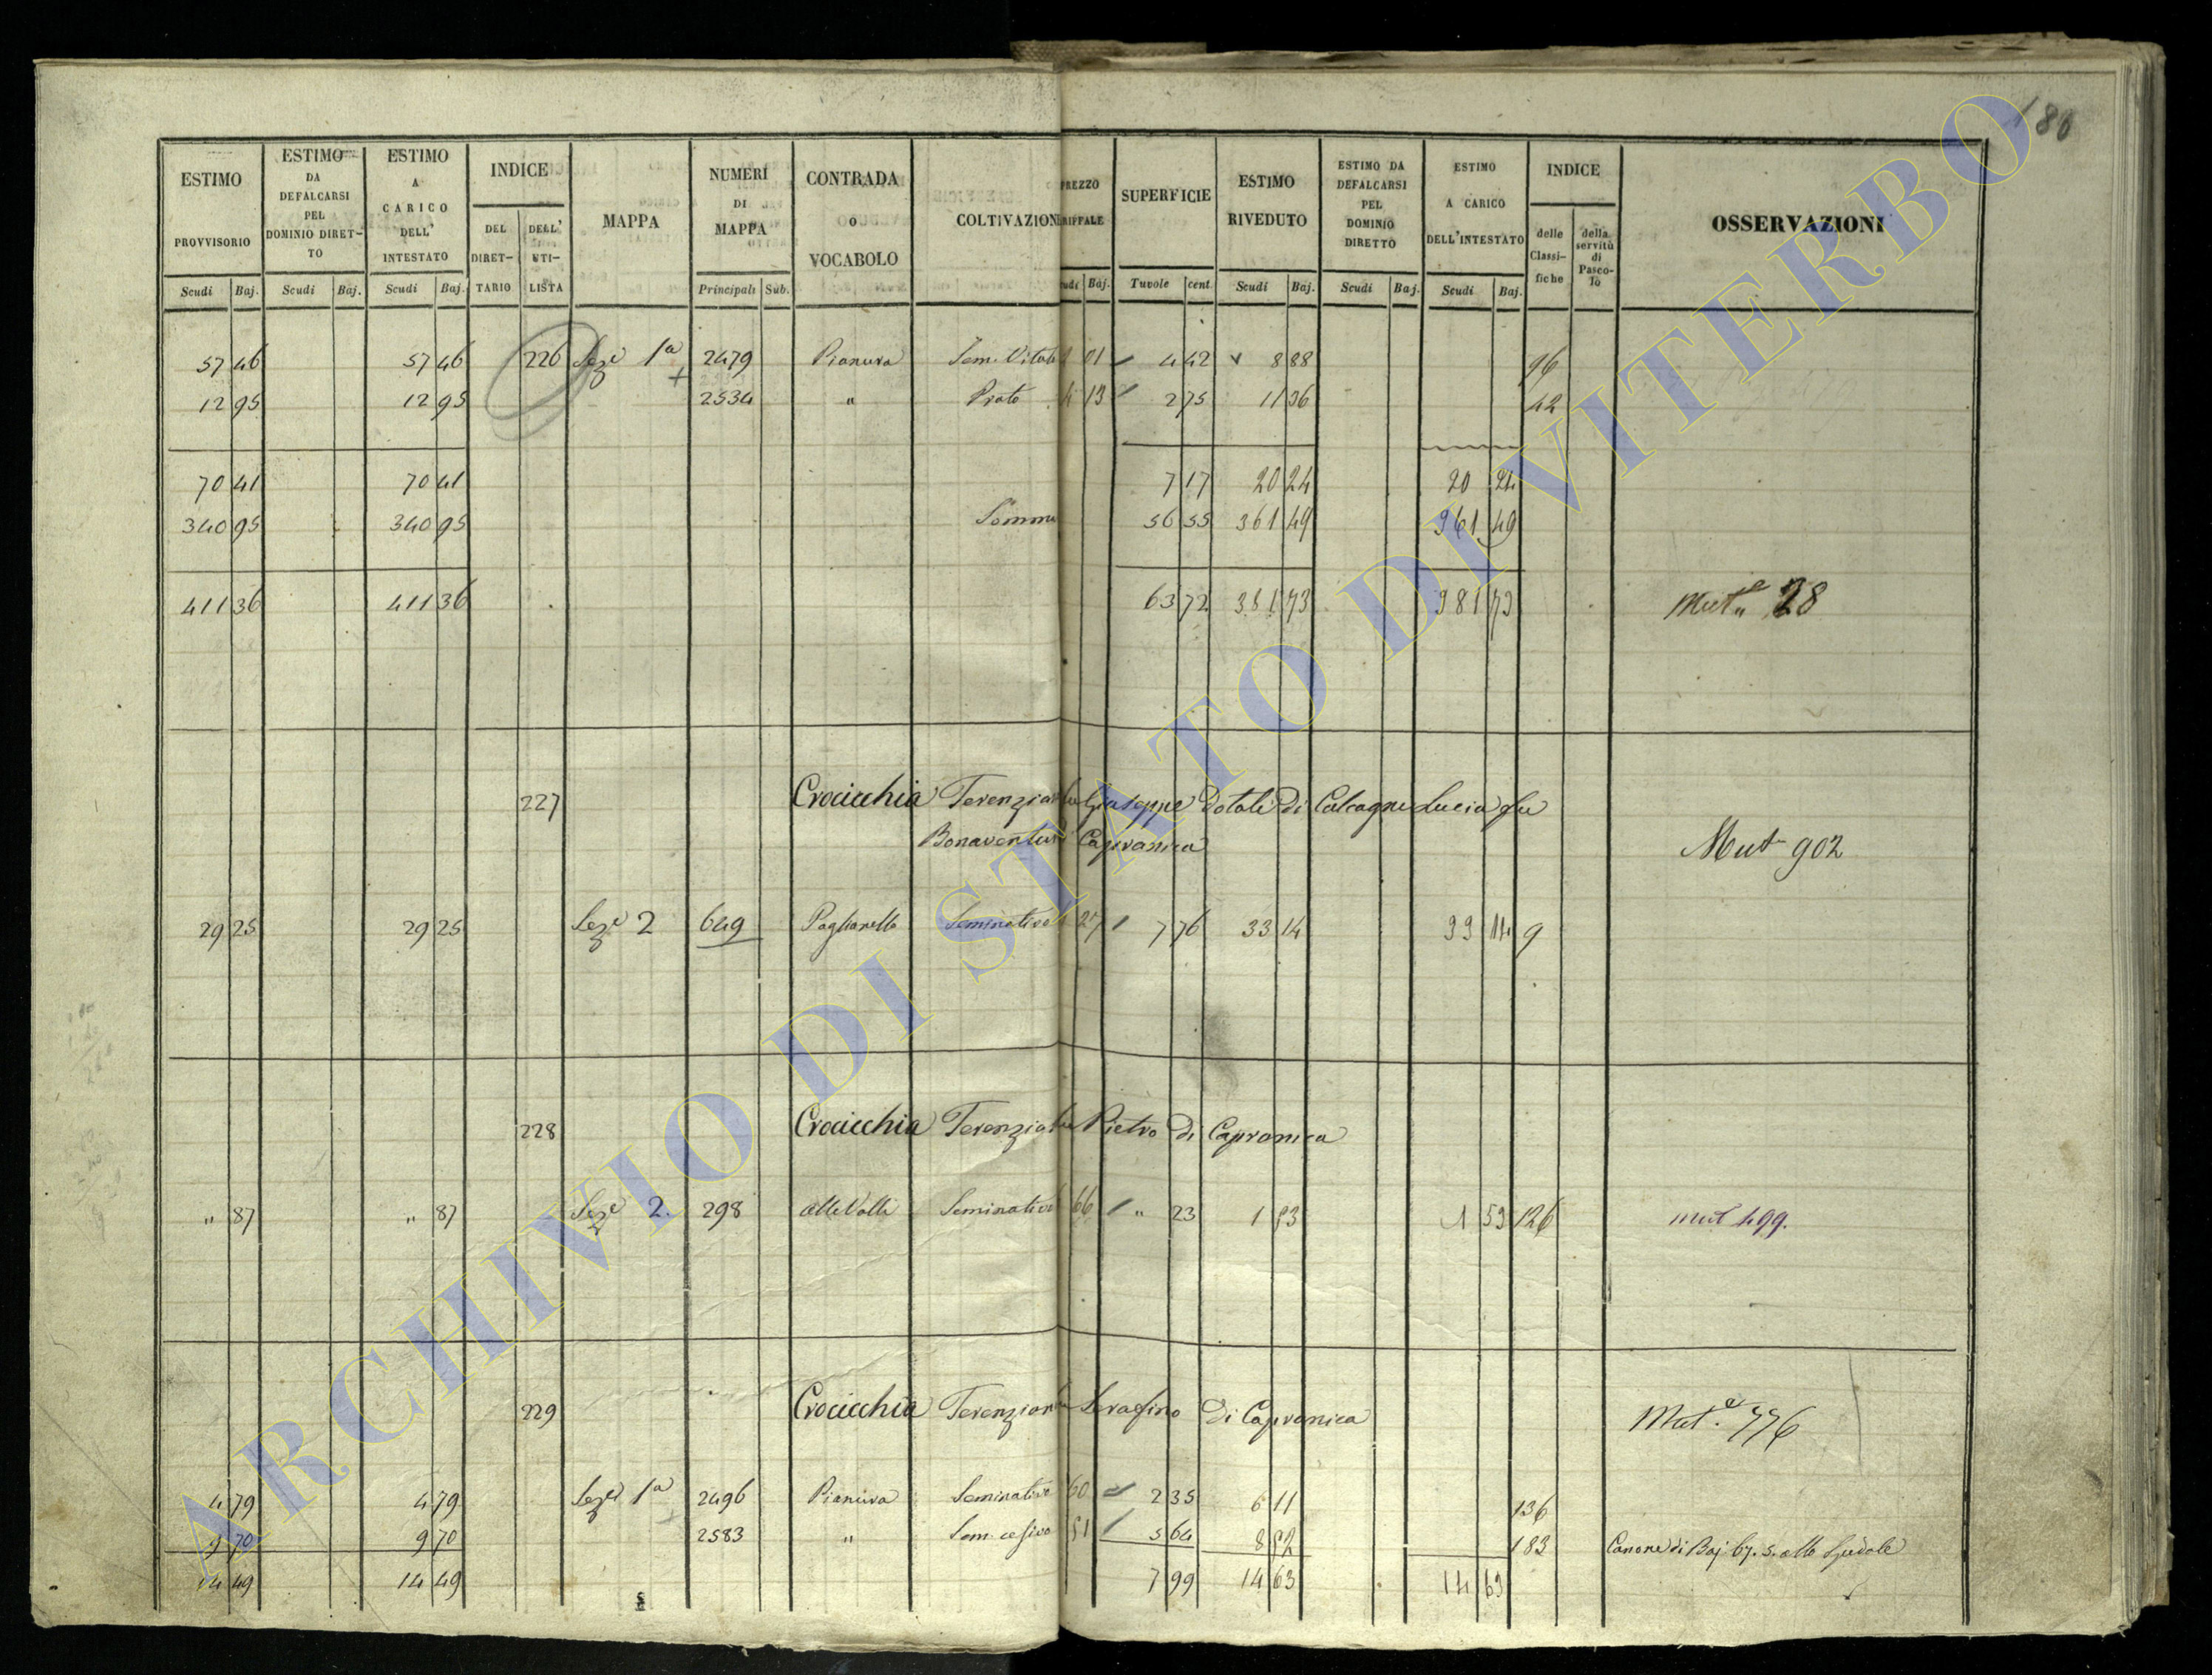 180
ESTIMO PROVVISORIO Scudi Baj. | ESTIMO DA DEFALCARSI PEL DOMINIO DIRET-TO Scudi Baj. | ESTIMO A CARICO DELL' INTESTATO Scudi Baj. | INDICE DEL DIRET-TARIO DELL' UTI-LISTA | MAPPA | NUMERI DI MAPPA Principali Sub. | CONTRADA O VOCABOLO | COLTIVAZION | PREZZO Baj. | SUPERFICIE Tavole cent. | ESTIMO RIVEDUTO Scudi Baj. | ESTIMO DA DEFALCARSI PEL DOMINIO DIRETTO Scudi Baj. | ESTIMO A CARICO DELL'INTESTATO Scudi Baj. | INDICE delle Classi-fiche della servitù di Pasco-lo | OSSERVAZIONI
57 46 57 46 226 Seze 1a 2479 Pianura Sem. Vitato 01 4 42 8 88 96
12 95 12 95 2534 " Prato 4 13 2 75 11 36 42
70 41 70 41 7 17 20 24 20 24
340 95 340 95 Somma 56 55 361 49 361 49
411 36 411 36 63 72 381 73 381 73 Mute 28
227 Crocicchia Terenziano fu Giuseppe dotale di Calcagni Lucia fu
Bonaventura Capranica
Mut 902
29 25 29 25 Seze 2 649 Paglianello Seminativo 27 7 76 33 14 33 14 9
228 Crocicchia Terenziano fu Pietro di Capranica
" 87 " 87 Seze 2. 298 alle Valli Seminativo 66 " 23 1 53 1 53 126 mut 499.
229 Crocicchia Terenziano fu Serafino di Capranica Mut.e 776
4 79 4 79 Seze 1a 2496 Pianura Seminativo 60 2 35 6 11 136
9 70 9 70 2583 " Sem. cesivo 51 5 64 8 52 183 Canone di Baj. 67. 5. allo Spedale
14 49 14 49 7 99 14 63 14 63
ARCHIVIO DI STATO DI VITERBO